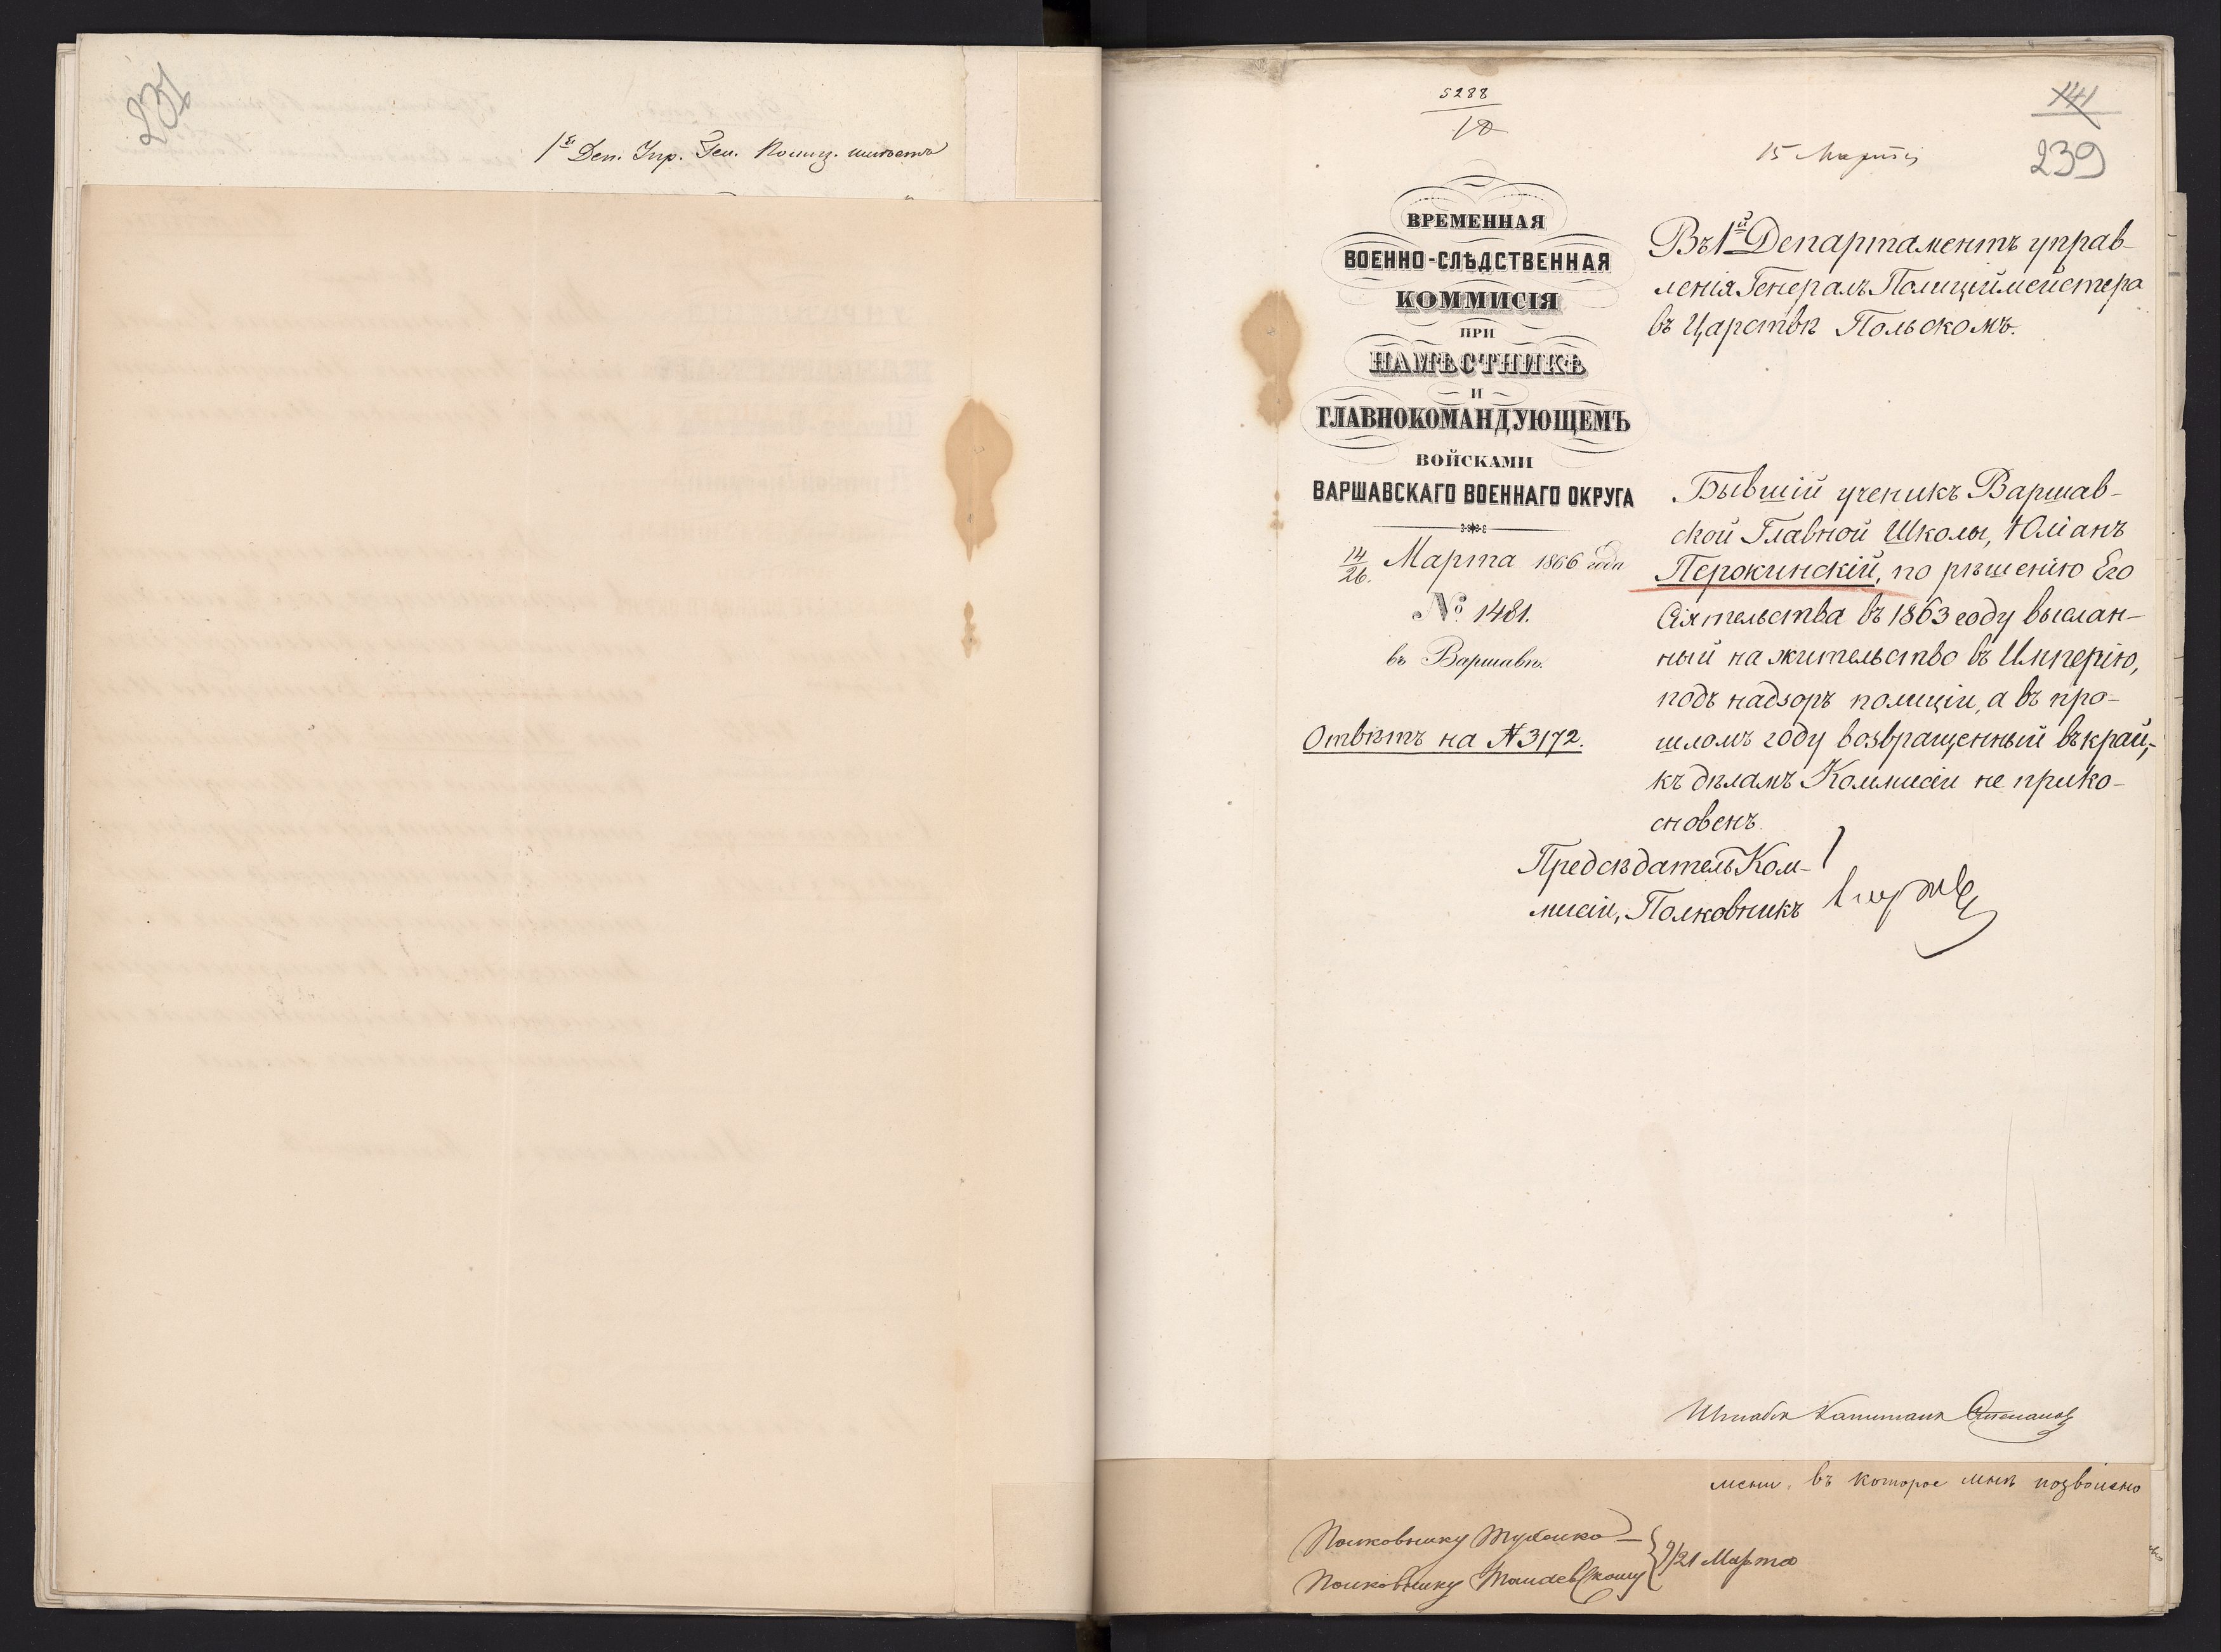 231
1й Деп. Упр. Ген. Полиц. имѣетъ
5288
10
15 Марта
141
239
ВРЕМЕННАЯ
ВОЕННО-СЛѢДСТВЕННАЯ
КОММИСІЯ
ПРИ
НАМѢСТНИКѢ
И
ГЛАВНОКОМАНДУЮЩЕМЪ
ВОЙСКАМИ
ВАРШАВСКАГО ВОЕННАГО ОКРУГА
14/26. Марта 1866 года
№ 1481.
въ Варшавѣ.
Отвѣтъ на N 3172.
Въ 1й Департаментъ управ-
ленія Генералъ Полиціймейстера
въ Царствѣ Польскомъ.
Бывшій ученикъ Варшав-
ской Главной Школы, Юліанъ
Перокинскій, по рѣшенію Его
Сіятельства въ 1863 году выслан-
ный на жительство въ Имперію,
подъ надзоръ полиціи, а въ про-
шломъ году возвращенный въ край,-
къ дѣламъ Коммисіи не прико-
сновенъ.
Предсѣдатель Ком-
мисіи, Полковникъ
Штабсъ Капитанъ Степановъ
мени, въ которое мнѣ позволено
Полковнику
Полковнику
9/21 Марта